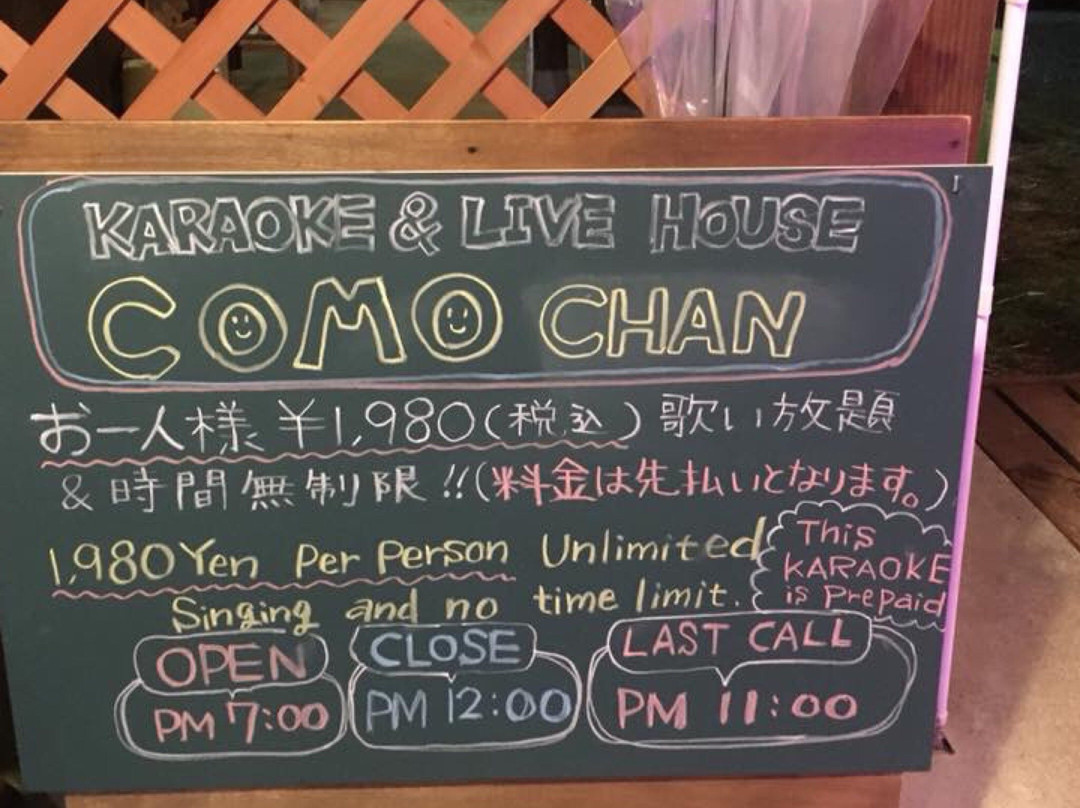 KARAOKE & LIVE HOUSE
COMO CHAN
お一人様 ¥1,980(税込)歌い放題
&時間無制限!!(料金は先払いとなります。)
1,980 Yen Per Person Unlimited
Singing and no time limit.
This
KARAOKE
is Prepaid
OPEN
PM 7:00
CLOSE
PM 12:00
LAST CALL
PM 11:00